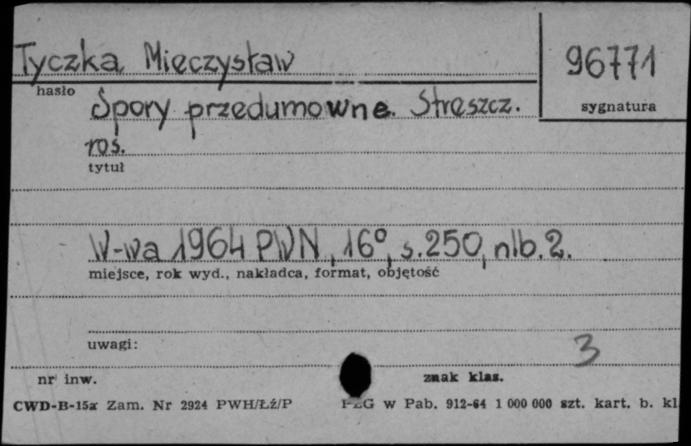 Tyczka Mieczysław
96771
hasło
sygnatura
Spory przedumowne. Streszcz.
ros.
tytuł
W-wa 1964 PWN, 16°, s.250, nlb.2.
miejsce, rok wyd., nakładca, format, objętość
uwagi:
3
nr inw.
znak klas.
CWD-B-15a Zam. Nr 2924 PWH/Łź/P
w Pab. 912-64 1 000 000 szt. kart. b. kl.